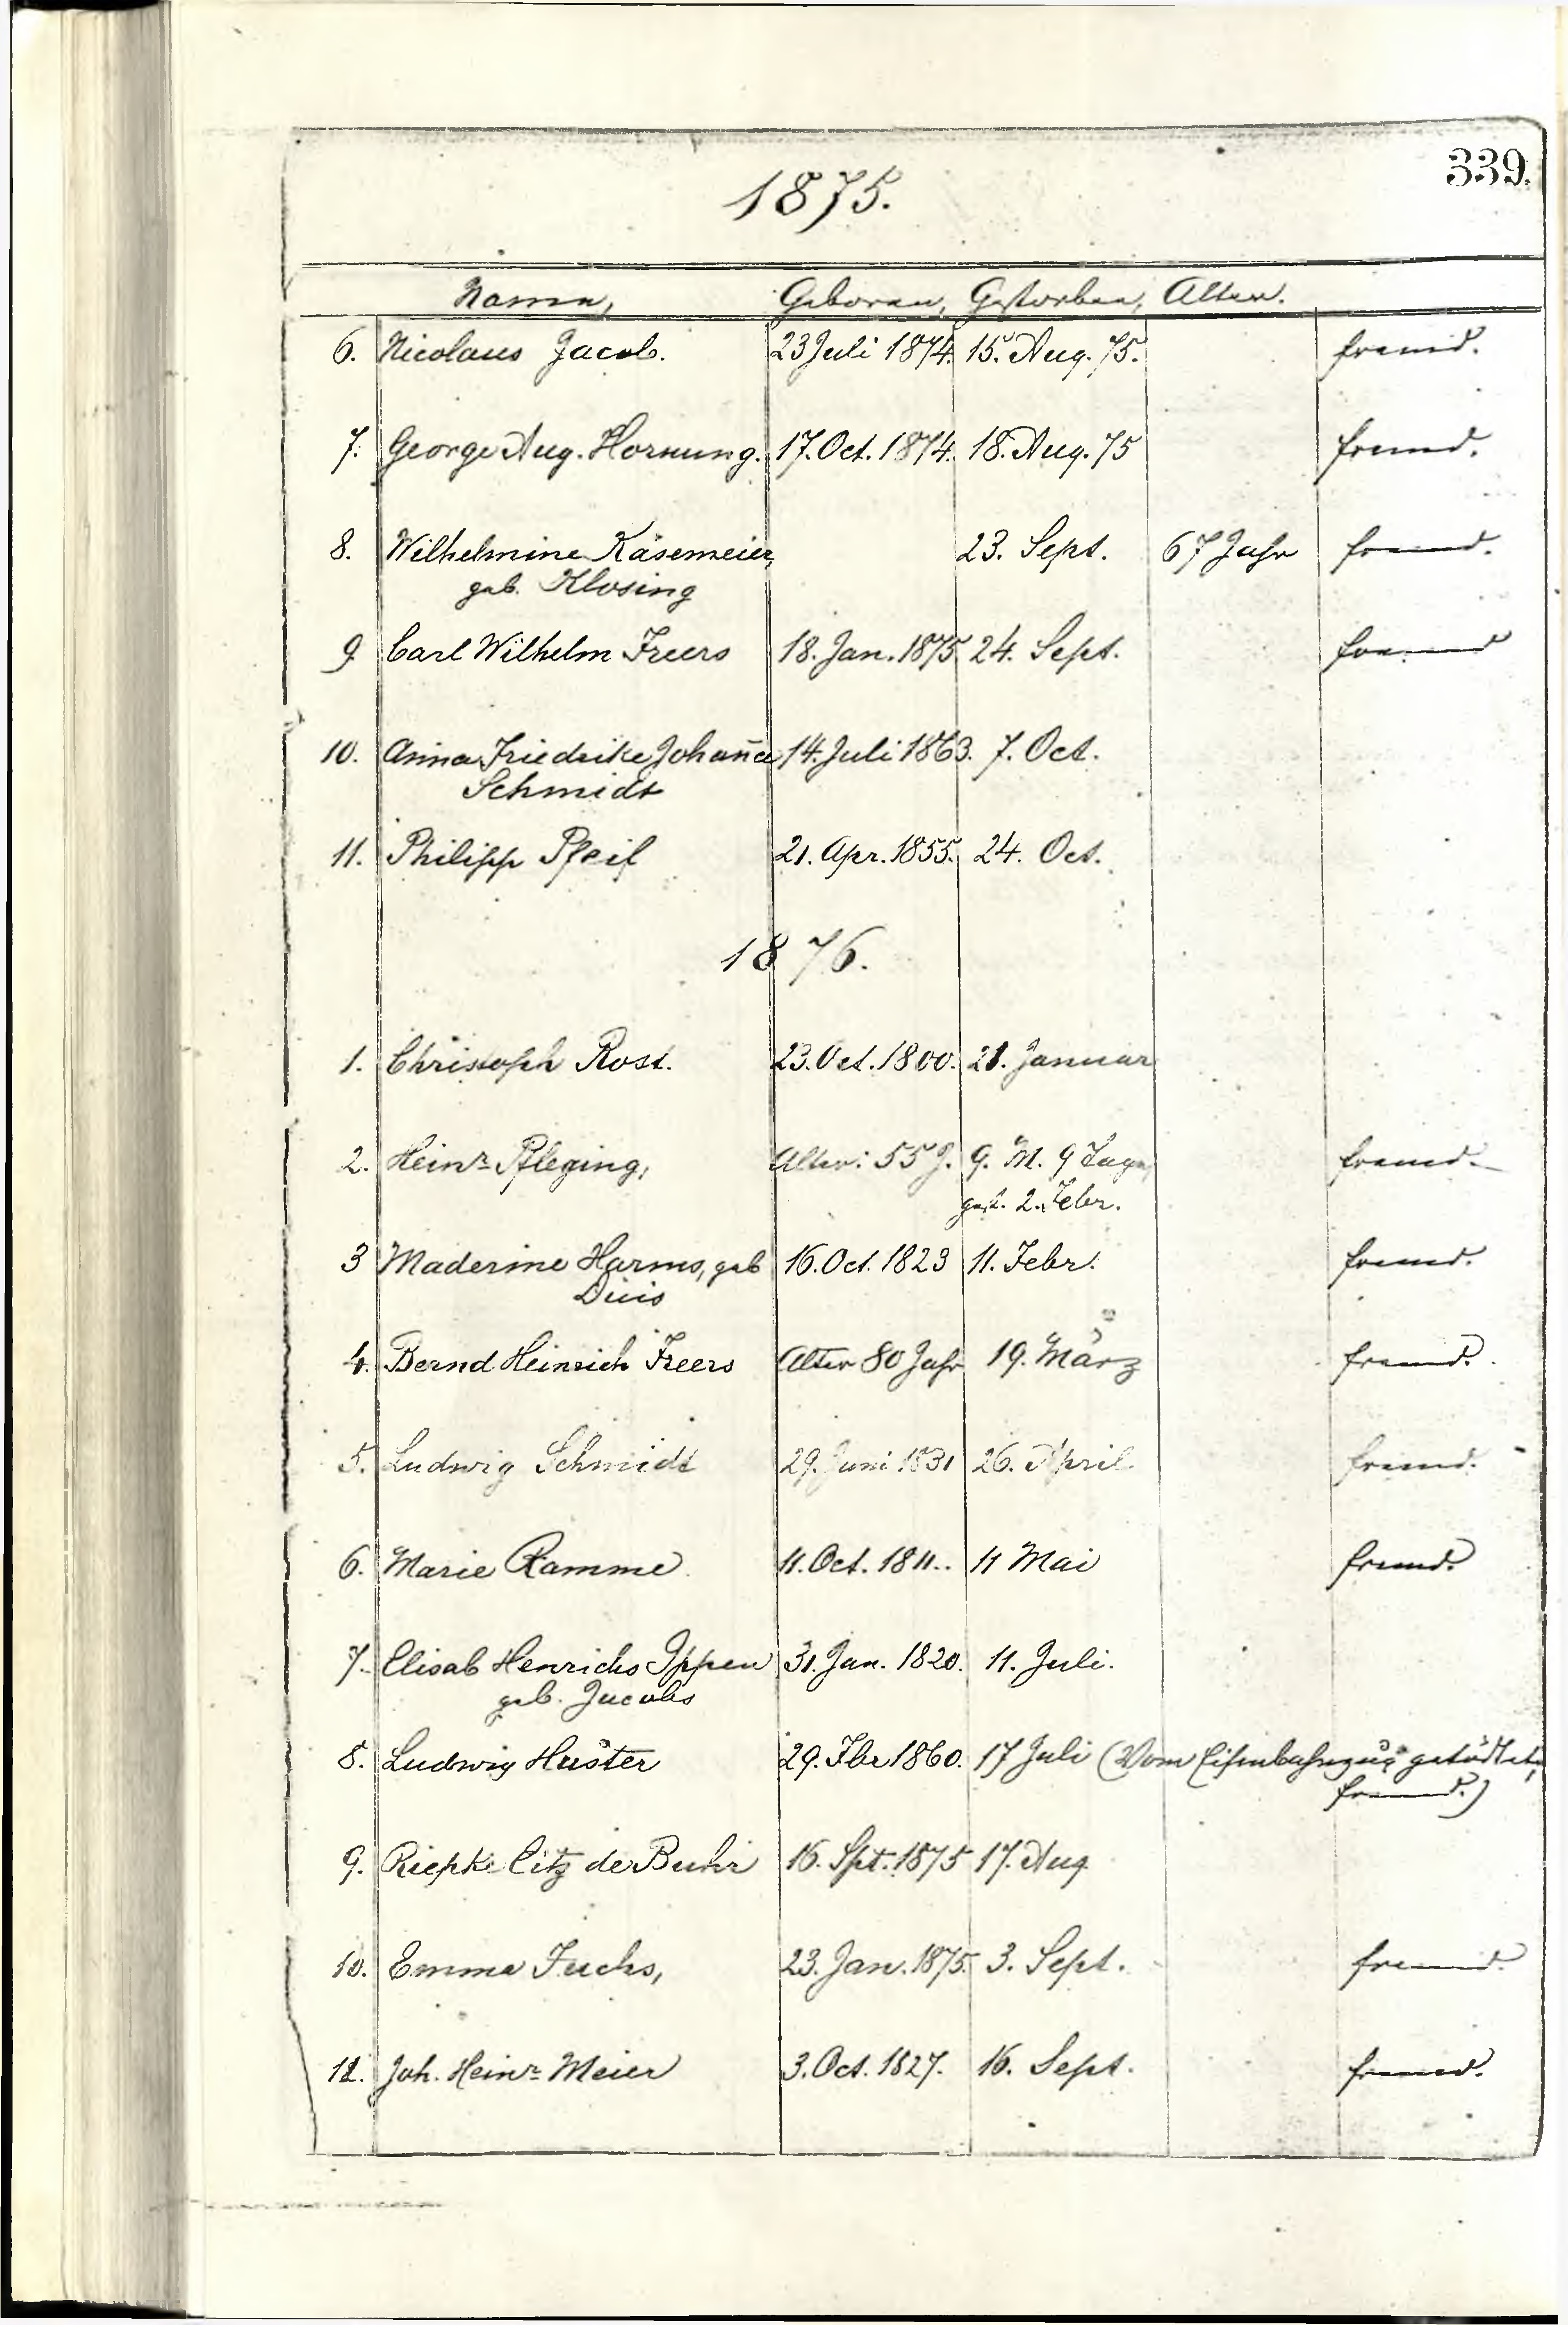 339.
1875.
Namen, Geboren, Gestorben, Alter.
6. Nicolaus Jacob. 23 Juli 1874. 15. Aug. 75. fremd.
7. George Aug. Hornung. 17. Oct. 1874. 18. Aug. 75 fremd.
8. Wilhelmine Käsemeier, 23. Sept. 67 Jahr fremd.
geb. Klosing
9 Carl Wilhelm Freers 18. Jan. 1875 24. Sept. fremd
10. Anna Friedrike Johaña 14. Juli 1863. 7. Oct.
Schmidt
11. Philipp Pfeif 21. Apr. 1855. 24. Oct.
1876.
1. Christoph Rost. 23. Oct. 1800. 21. Januar
2. Heinr. Pfleging, Alter: 55 J. 9. M. 9 Tage,
gest. 2. Febr. fremd.
3 Maderine Harms, geb 16. Oct. 1823 11. Febr. fremd.
Duis
4. Bernd Heinrich Freers Alter 80 Jahr 19. März fremd.
5. Ludwig Schmidt 29. Juni 1831 26. April fremd.
6. Marie Ramme 11. Oct. 1811. 11 Mai fremd.
7. Elisab Henrichs Ippen 31. Jan. 1820. 11. Juli.
geb. Jacobs
8. Ludwig Huster 29. Fbr 1860. 17 Juli (Vom Eisenbahnzug getödtet,
fremd.)
9. Riepke de Buhr 16. Spt. 1875 17. Aug
10. Emma Fuchs, 23. Jan. 1875. 3. Sept. fremd.
11. Joh. Heinr. Meier 3. Oct. 1827. 16. Sept. fremd.